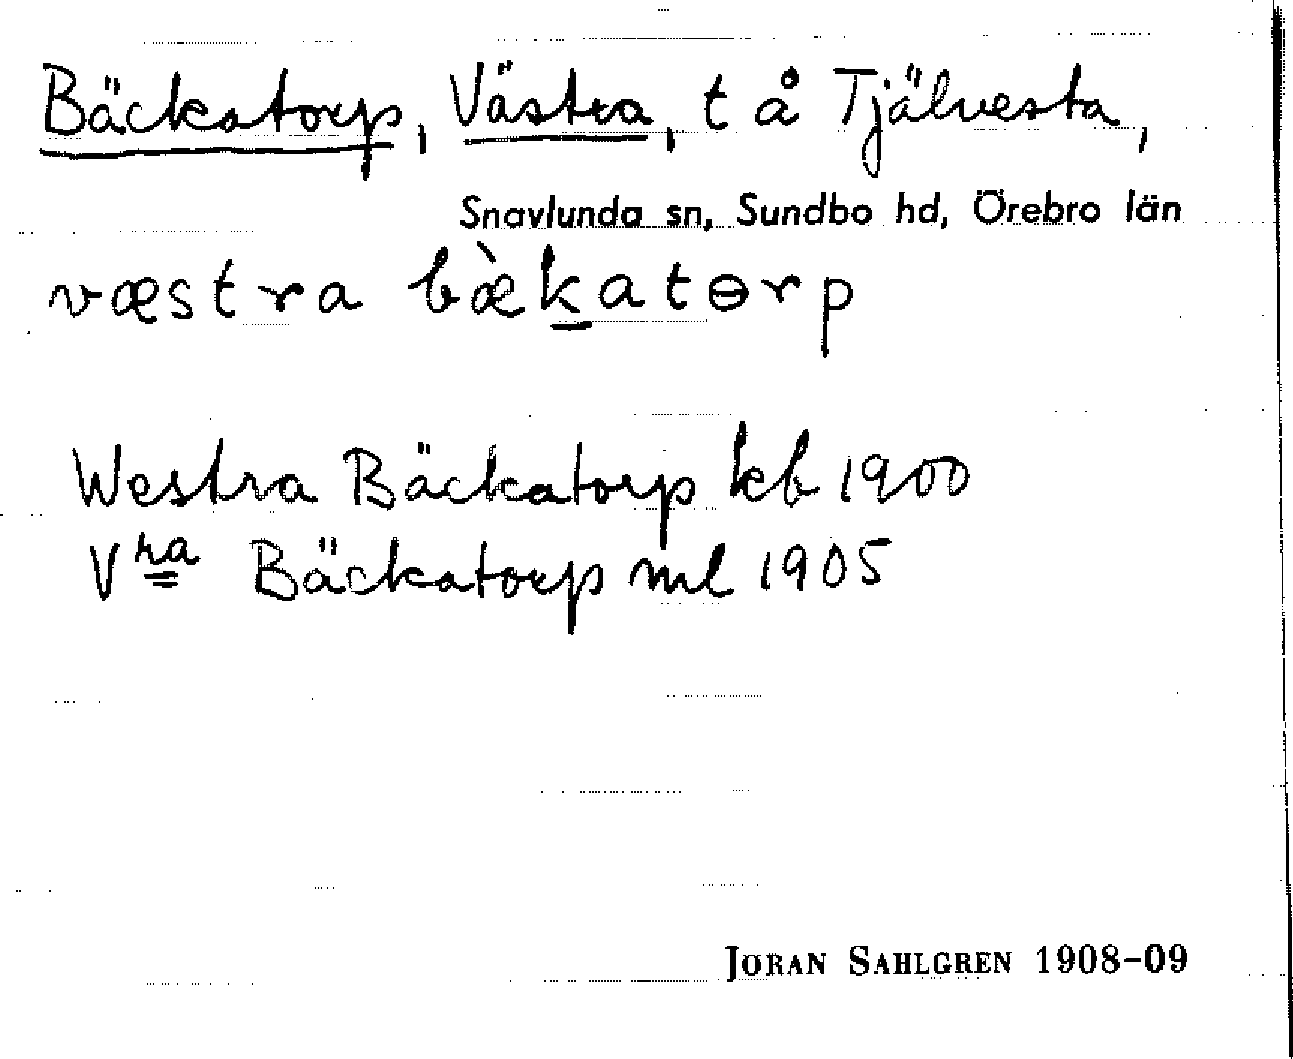 Bäckatorp, Västra, t å Tjälvesta,
Snavlunda sn, Sundbo hd, Örebro län
væstra bæ̀ḵatɵrp
Westra Bäckatorp kb 1900
Vra Bäckatorp ml 1905
JORAN SAHLGREN 1908-09